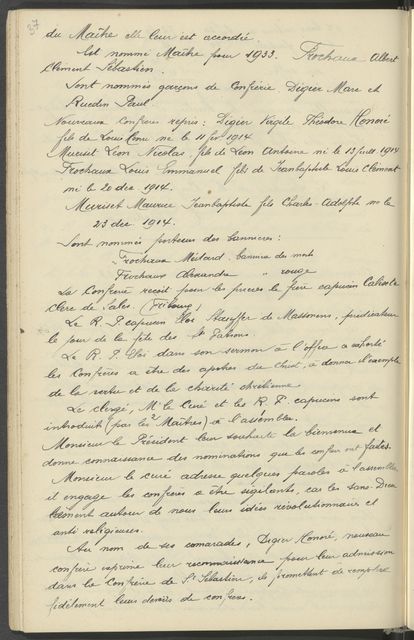 37
du Maître elle leur est accordée.
Est nommé Maître pour 1933. Frochaux Albert
Clément Sébastien.
Sont nommés garçons de Confrérie Digier Marc et
Ruedin Paul
Nouveaux confrères reçus: Digier Virgile Théodore Honoré
fils de Louis né le 11 1914
Muriset Léon Nicolas. fils de Léon Antoine né le 13 juill 1914
Frochaux Louis Emmanuel fils de Jeanbaptiste Louis Clément
né le 20 déc 1914.
Muriset Maurice Jeanbaptiste fils Charles-Adolphe né le
23 déc 1914.
Sont nommés porteurs des bannières:
Frochaux Médard, bannière des morts
Frochaux Alexandre " rouge
La Confrérie reçoit pour les prières le frère capucin
Clerc de Sales. (Fribourg)
Le R. P. capucin Eloi Stauffer de Massonnens, prédicateur
le jour de la fête des St Patrons.
Le R. P. Eloi dans son sermon à l'office a exhorté
les Confrères à être des apôtres du Christ, à donner l'exemple
de la vertu et de la charité chrétienne
Le clergé, Mr le Curé et les R. P. capucins sont
introduit (par les 2 Maîtres) à l'assemblée.
Monsieur le Président leur souhaite la bienvenue et
donne connaissance des nominations que les confrères ont faites.
Monsieur le curé adresse quelques paroles à l'assemblée,
il engage les confrères à être vigilants, car les sans-Dieu
sèment autour de nous leurs idées révolutionnaires et
anti religieuses.
Au nom de ses camarades, Digier Honoré, nouveau
confrère exprime leur reconnaissance pour leur admission
dans la Confrérie de St Sébastien, ils promettent de remplir
fidèlement leurs devoirs de confrères.